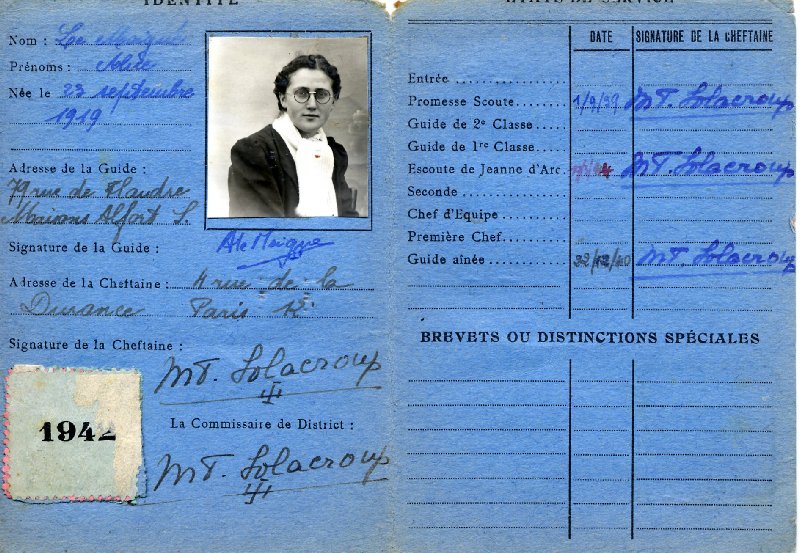 IDENTITÉ
Nom : Le Moigne
Prénoms : Alice
Née le 23 septembre
1919
Adresse de la Guide :
79 rue de Flandre
Maisons Alfort S.
Signature de la Guide :
Adresse de la Cheftaine : 11 rue de la
Durance Paris 12e
Signature de la Cheftaine :
MT. Solacroup
1942
La Commissaire de District :
MT. Solacroup
ÉTATS DE SERVICE
DATE SIGNATURE DE LA CHEFTAINE
Entrée
Promesse Scoute 1/9/39 MT. Solacroup
Guide de 2e Classe
Guide de 1re Classe
Escoute de Jeanne d'Arc. MT. Solacroup
Seconde
Chef d'Equipe
Première Chef
Guide aînée /12/40 MT. Solacroup
BREVETS OU DISTINCTIONS SPÉCIALES